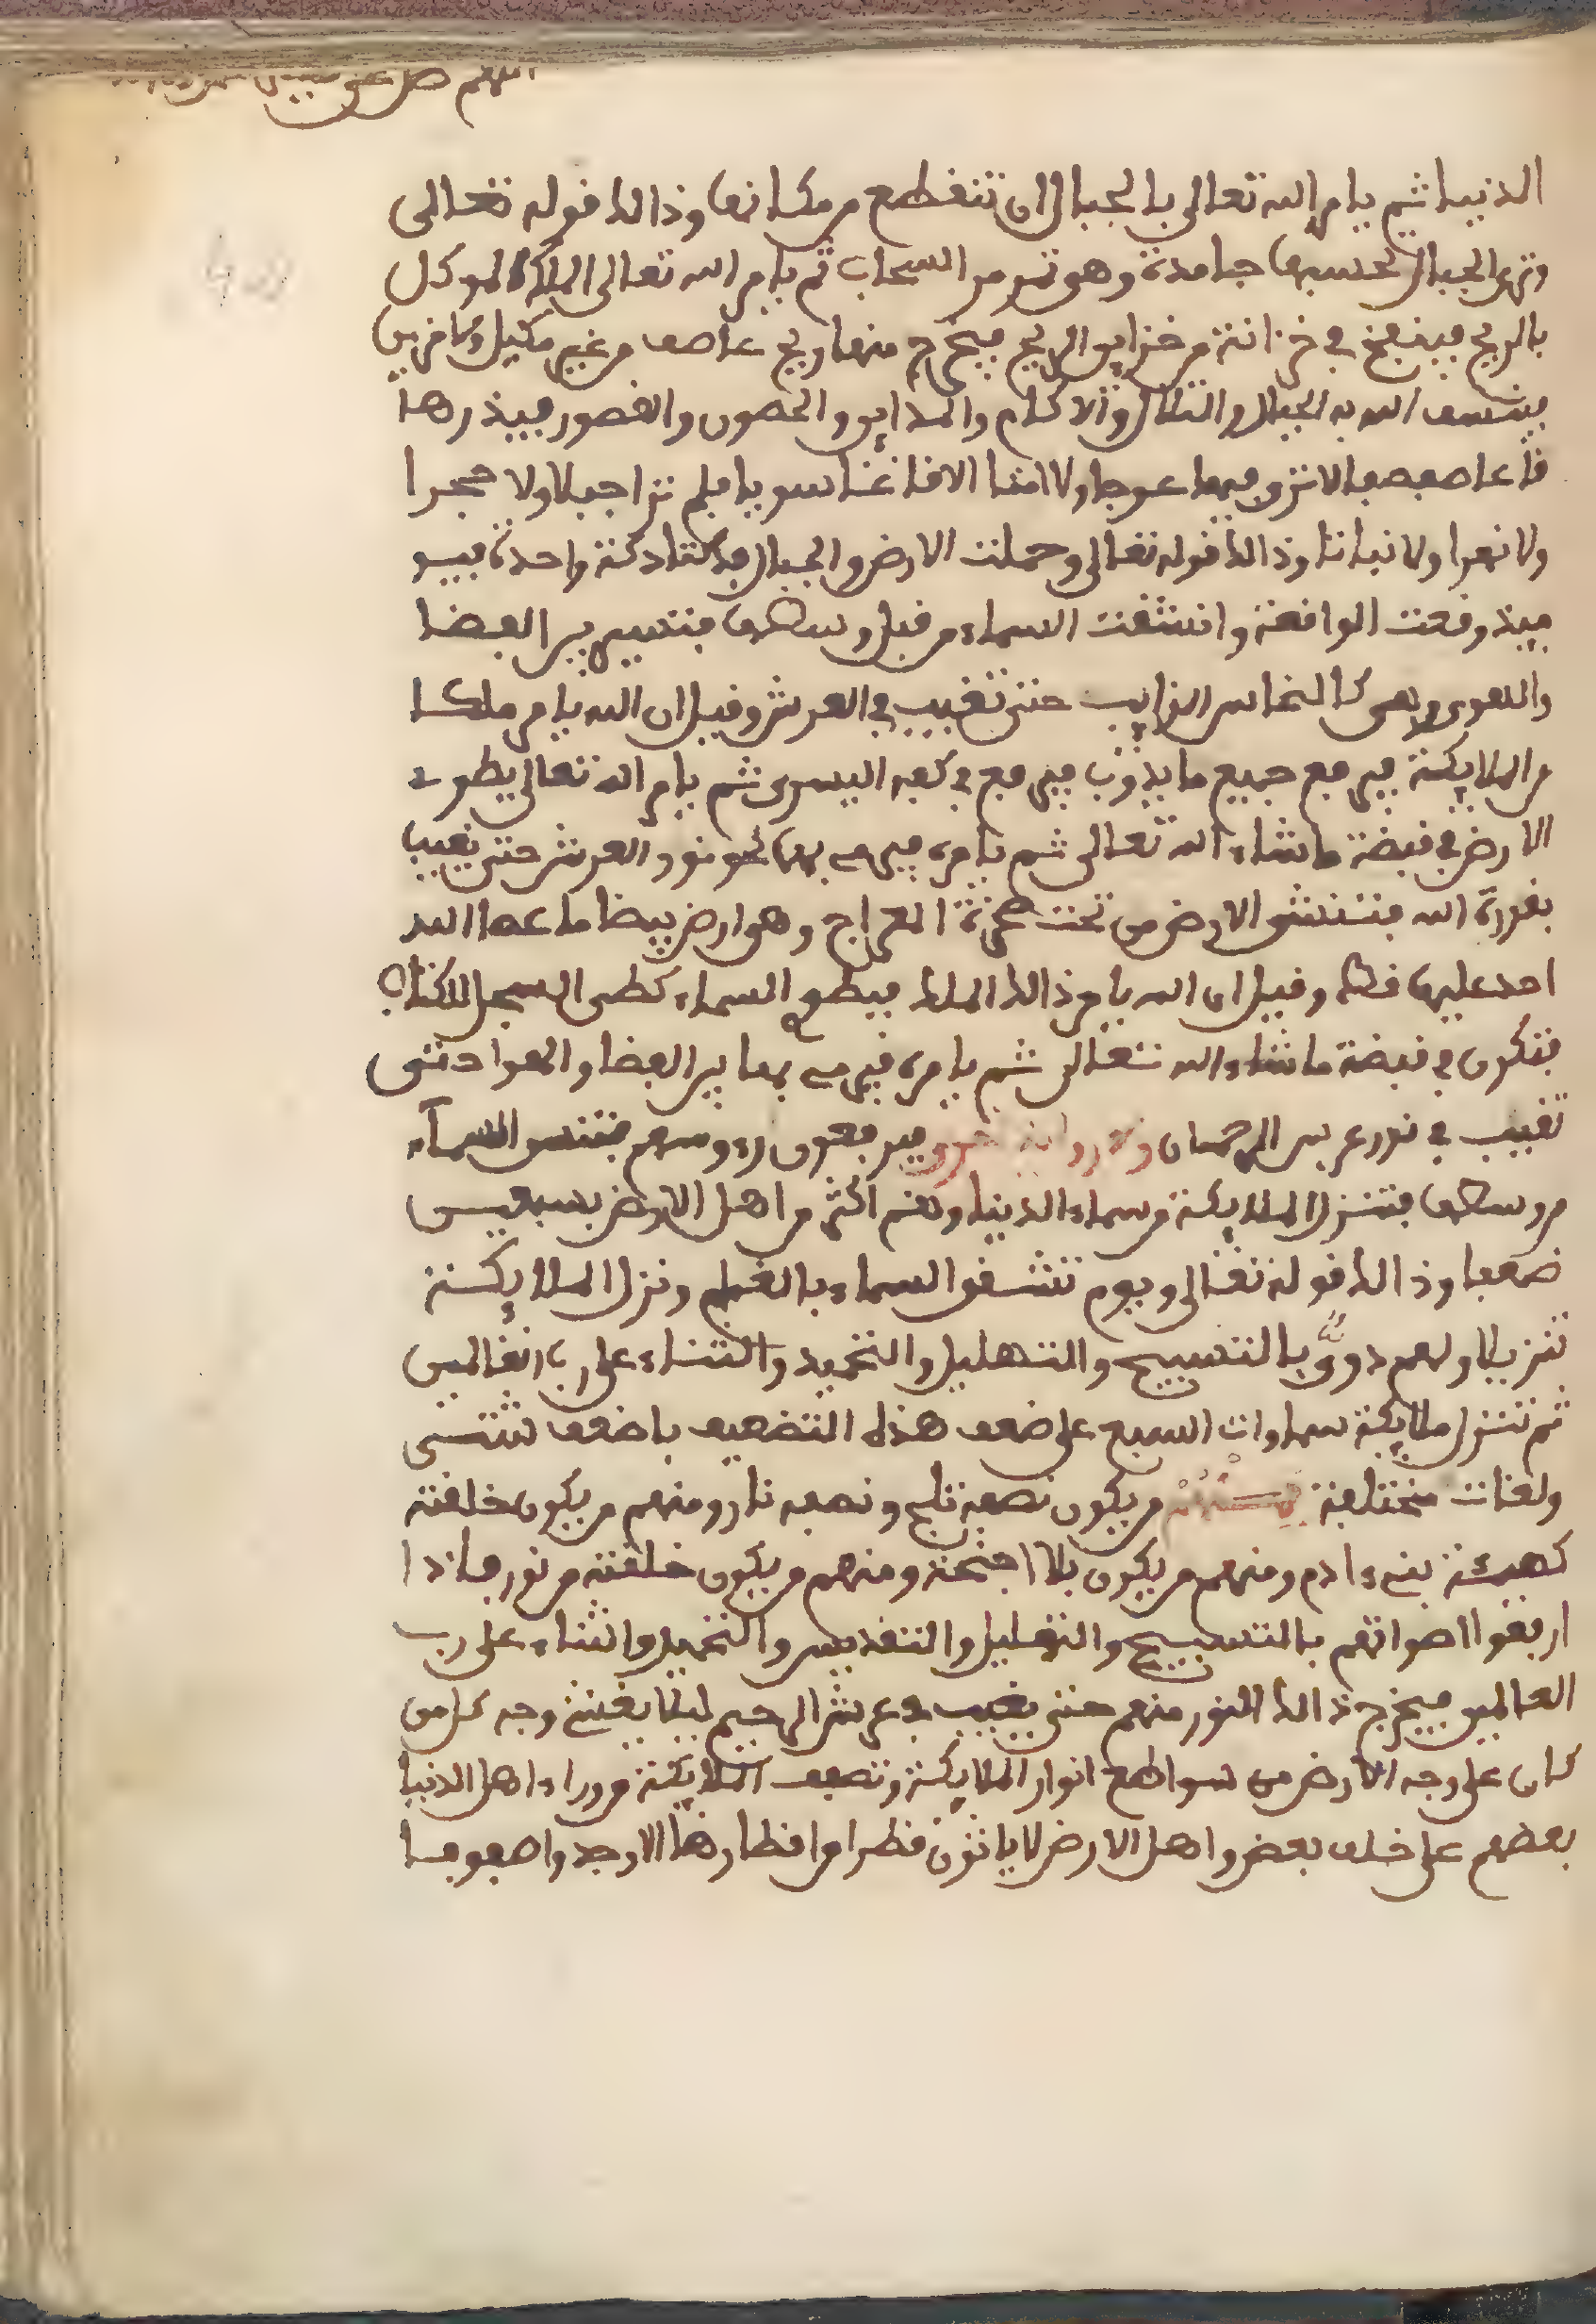 اللهم صل على
الدنيا ثم يامر الله تعالى بالجبال ان تنقطع من مكانها وذالك قوله تعالى
وترى الجبال تحسبها جامدة وهي تمر مر السحاب ثم يامر الله تعالى الملك الموكل
بالريح فينفخ في خزانة من خزاين الريح فيخرج منها ريح عاصف من غير مكيل
فينسف الله به الجبال والتلال والاكام والمداين والحصون والقصور فيذرها
قاعا صفصفا لا ترى فيها عوجا ولا امتا الا قاعا سويا فلم ترا جبلا ولا حجرا
ولا نهرا ولا نباتا وذالك قوله تعالى وحملت الارض والجبال فدكتا دكة واحدة فيو
ميذ وقعت الواقعة وانشقت السماء من قبل وسطها فتسير بين الفضا
والهوى وهي كالنحاس الذايب حتى تغيب في العرش وقيل ان الله يامر ملكا
من الملايكة فيرفع جميع ما يذوب فيرفع في كفه اليسرى ثم يامر الله تعالى يطوي
الارض في قبضة ما شاء الله تعالى ثم يامره فيرمي بها نحو نور العرش حتى يغيب
بقدرة الله فتنشق الارض من تحت صخرة المعراج وهي ارض بيضا ما عصا الله
احد عليها قط وقيل ان الله يامر ذالك الملك فيطوي السماء كطي السجل للكتاب
فتكون في قبضة ما شاء الله تعالى ثم يامره فيرمي بها بين الفضا والهوا حتى
تغيب في نور عرش الرحمان وفي رواية اخرى فيرفعون رءوسهم فتنشق السماء
من وسطها فتنزل الملايكة من سماء الدنيا وهم اكثر من اهل الارض بسبعين
ضعفا وذالك قوله تعالى ويوم تشقق السماء بالغمام ونزل الملايكة
تنزيلا ولهم دوي بالتسبيح والتهليل والتحميد والثناء على رب العالمين
ثم تنزل ملايكة سماوات السبع على ضعف هذه التضعيف باضعف شتى
ولغات مختلفة فمنهم من يكون نصفه ثلج ونصفه نار ومنهم من يكون خلقته
كهيئة بنيءادم ومنهم من يكون بلا اجنحة ومنهم من يكون خلقته من نور فاذا
ارفعوا اصواتهم بالتسبيح والتهليل والتقديس والتحميد والثناء على رب
العالمين فيخرج ذالك النور منهم حتى يغيب في عرش الرحيم ليلا يغشى وجه كل من
كان على وجه الارض من سواطع انوار الملايكة وتصف الملايكة من وراء اهل الدنيا
بعضهم على خلف بعض واهل الارض لا ياتون قطرا من اقطارها الا وجدوا صفوفا